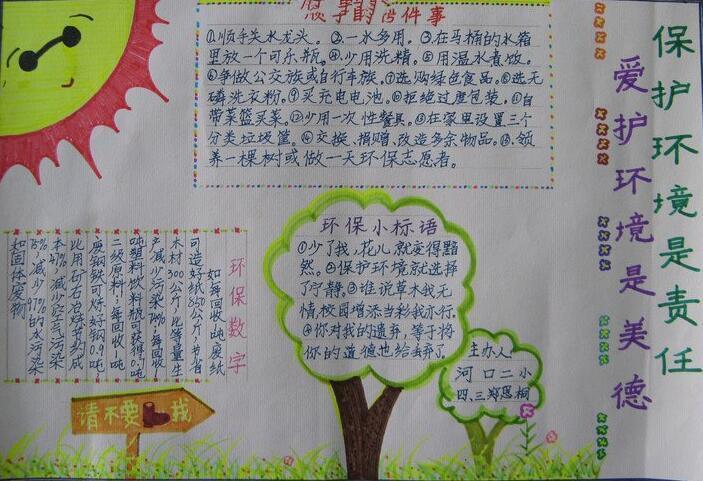 件事
①顺手关水龙头。②一水多用。③在马桶的水箱
里放一个可乐瓶。④少用洗精。⑤用温水煮饭。
⑥争做公交族或自行车族。⑦选购绿色食品。⑧选无
磷洗衣粉。⑨买充电电池。⑩拒绝过度包装。⑪自
带菜篮买菜。⑫少用一次性餐具。⑬在家里设置三个
分类垃圾筐。⑭交换、捐赠、改造多余物品。⑮领
养一棵树或做一天环保志愿者。
保护环境是责任
爱护环境是美德
环保小标语
①少了我,花儿就变得黯
然。②保护环境就选择
了宁静。③谁说草木我无
情,校园增添当彩我亦行。
④你对我的遗弃,等于将
你的道德也给丢弃了。
环保数字
如每回收1吨废纸
可造好纸850公斤,节省
木材300公斤,比等量生
产减少污染74%,每回收1
吨塑料饮料瓶可获得0.7吨
二级原料;每回收1吨
废钢铁可炼好钢0.9吨
比用矿石冶炼节约成
本47%,减少空气污染
75%,减少97%的水污染
和固体废物
主办人
河口二小
四、三郑恩桐
请不要
我